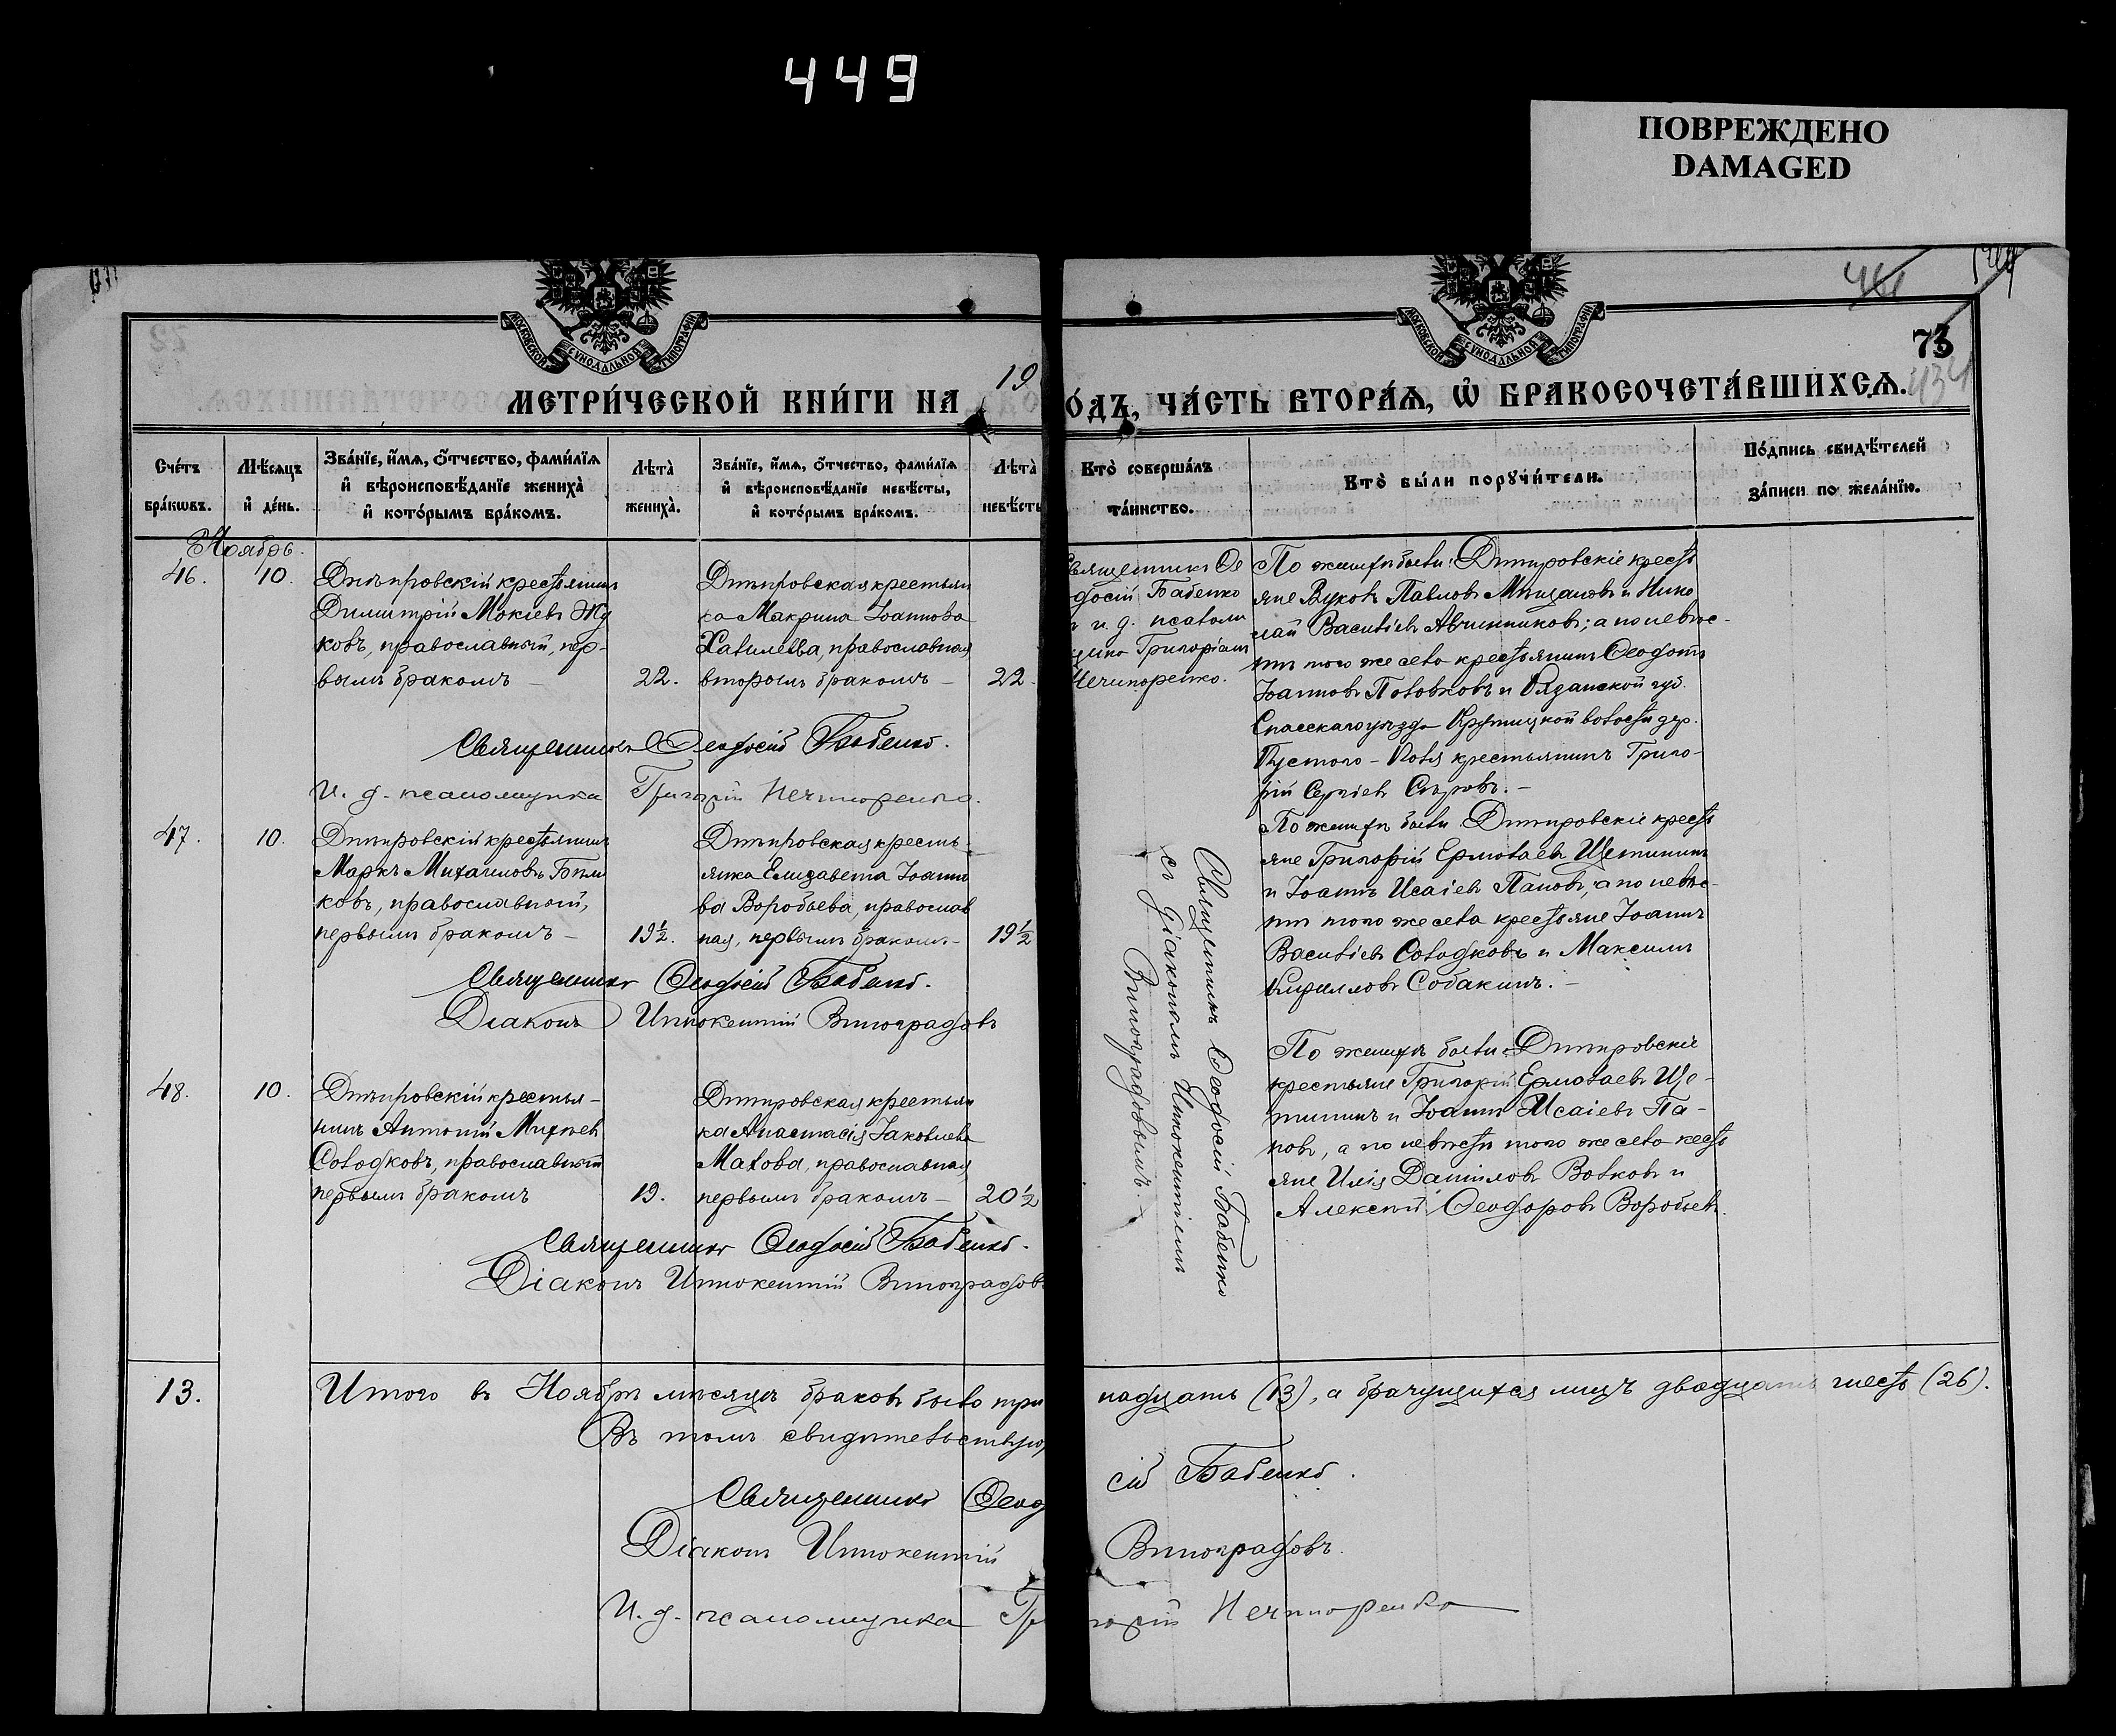 449
ПОВРЕЖДЕНО
DAMAGED
МОСКОВСКОЙ СѴНОДАЛЬНОЙ ТИПОГРАФІИ
МОСКОВСКОЙ СѴНОДАЛЬНОЙ ТИПОГРАФІИ
73
434
МЕТРИ́ЧЕСКОЙ КНИ́ГИ НА 19
О́ДЪ, ЧА́СТЬ ВТОРА́Ѧ, Ѡ҆ БРАКОСОЧЕТА́ВШИХСѦ.
Сче́тъ
бра́кѡвъ.
Мѣ́сѧцъ
и҆ де́нь.
Зва́нїе, и҆́мѧ, ѻ҆́тчество, фами́лїѧ
и҆ вѣроисповѣ́данїе жениха̀
и҆ кото́рымъ бра́комъ.
Лѣта̀
жениха̀.
Зва́нїе, и҆́мѧ, ѻ҆́тчество, фами́лїѧ
и҆ вѣроисповѣ́данїе невѣ́сты,
и҆ кото́рымъ бра́комъ.
Лѣта̀
невѣ́сты
Кто̀ соверша́лъ
та́инство.
Кто̀ бы́ли порꙋчи́тели.
По́дпись свидѣ́телей
за́писи по жела́нїю.
Ноябрь.
46.
10.
Днѣпровскій крестьянинъ
Димитрій Мокіевъ Жу
ковъ, православный, пер-
вымъ бракомъ –
22.
Днѣпровская крестьян
ка Макрина Іоаннова
православная
вторымъ бракомъ –
22.
Священникъ Ѳе
досій Бабенко
и. д. псалом
щика Григоріемъ
Нечипоренко.
По женихѣ были: Днѣпровскіе кресть
яне Павловъ и Нико
лай Васильевъ Авчинниковъ; а по невѣс-
тѣ того же села крестьянинъ Ѳеодотъ
Іоанновъ и Рязанской губ.
Спасскаго уѣзда волости дер.
крестьянинъ Григо-
рій Сергіевъ Сѣровъ. –
Священникъ Ѳеодосій Бабенко.
И. д. псаломщика Григорій Нечипоренко.
47.
10.
Днѣпровскій крестьянинъ
Маркъ Михаиловъ Бѣли
ковъ, православный,
первымъ бракомъ –
19½.
Днѣпровская кресть-
янка Елизавета Іоанно
ва Воробьева, православ
ная, первымъ бракомъ –
19½
По женихѣ были Днѣпровскіе кресть
яне Григорій Ермолаевъ Щетининъ
и Іоаннъ Исаіевъ Пановъ, а по невѣс-
тѣ того же села крестьяне Іоаннъ
Васильевъ Солодковъ и Максимъ
Кирилловъ Собакинъ. –
Священникъ Ѳеодосій Бабенко.
Діаконъ Иннокентій Виноградовъ
Священникъ Ѳеодосій Бабенко
съ діакономъ Иннокентіемъ
Виноградовымъ. –
48.
10.
Днѣпровскій крестья-
нинъ Антоній Михѣевъ
Солодковъ, православный
первымъ бракомъ
19.
Днѣпровская крестьян
ка Анастасія Іаковлева
Малова, православная
первымъ бракомъ –
20½
По женихѣ были Днѣпровскіе
крестьяне Григорій Ермолаевъ Ще-
тининъ и Іоаннъ Исаіевъ Па-
новъ, а по невѣстѣ того же села кесть
яне Илія Даніиловъ Волковъ и
Алексѣй Ѳеодоровъ Воробьевъ.
Священникъ Ѳеодосій Бабенко.
Діаконъ Иннокентій Виноградовъ
13.
Итого въ Ноябрѣ мѣсяцѣ браковъ было три
надцать (13), а брачущихся лицъ двадцать шесть (26).
Въ томъ свидѣтельствую,
Священникъ Ѳеодо
сій Бабенко.
Діаконъ Иннокентій
Виноградовъ.
И. д. псаломщика Гри
горій Нечипоренко